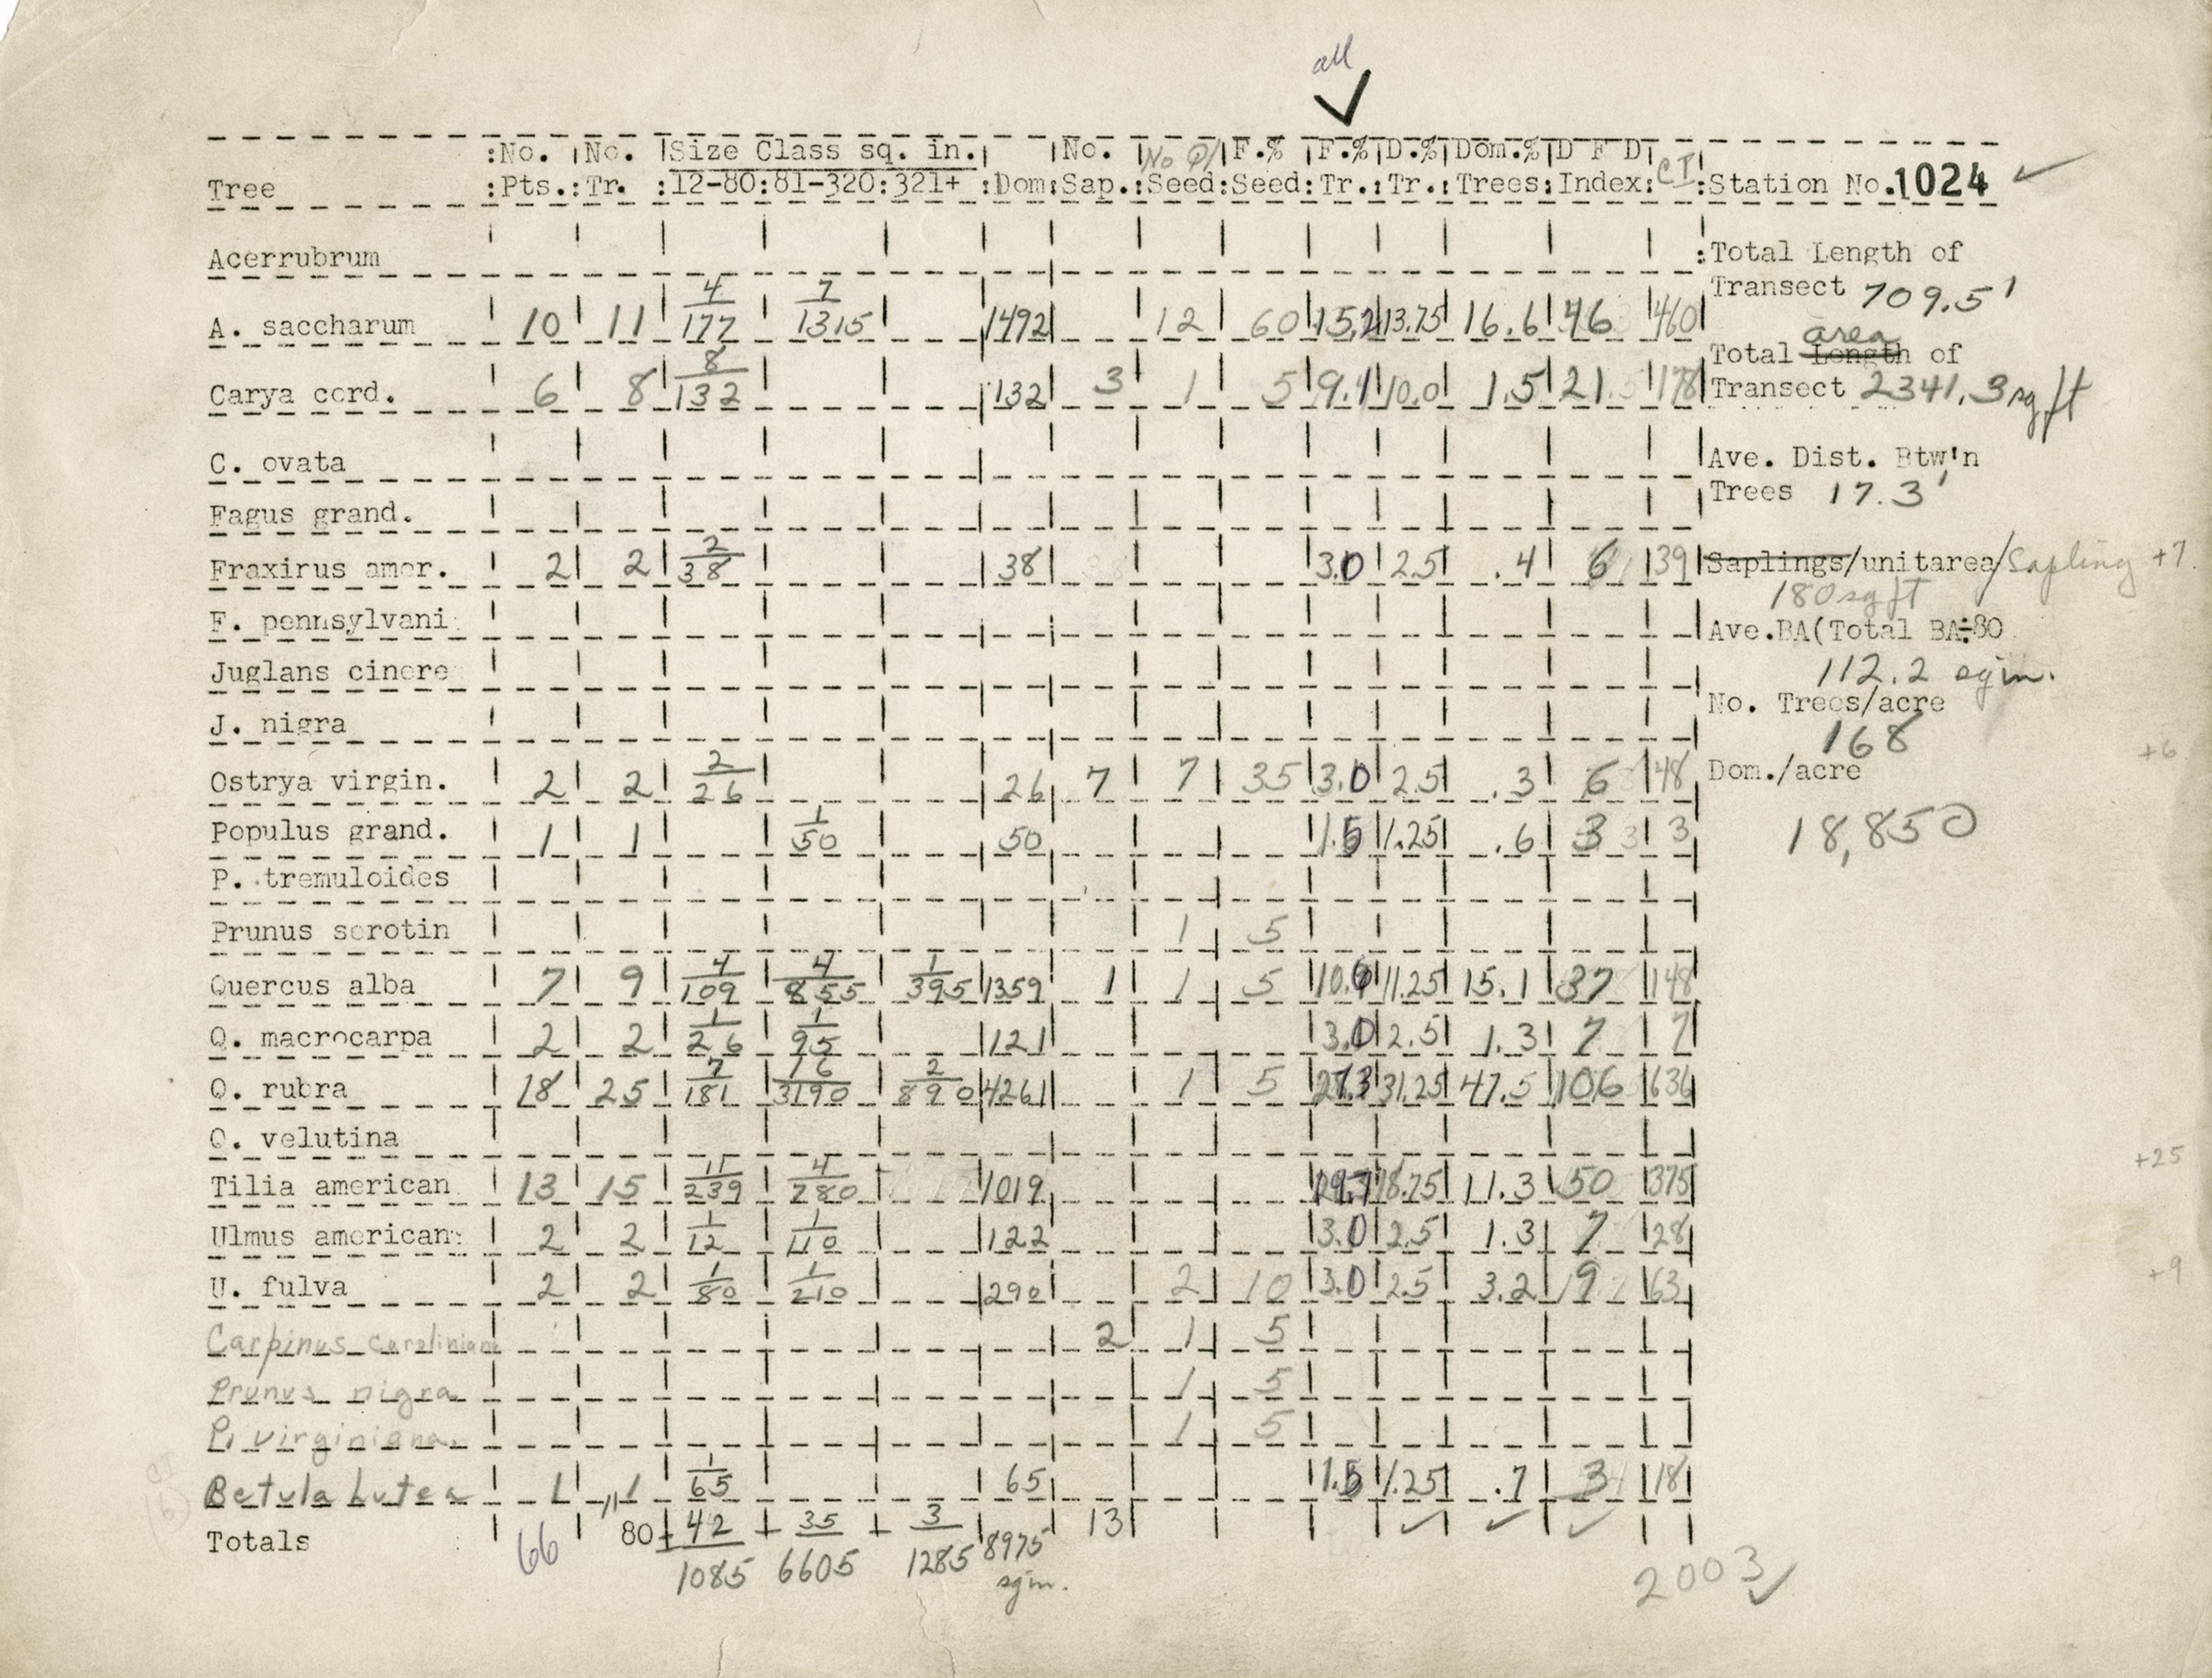 all
✓
:No. No. Size Class sq. in. No. No Q/ F.% F.% D.% Dom.% D F D CI
Tree :Pts.: Tr. :12-80:81-320:321+ :Dom: Sap.: Seed: Seed: Tr.: Tr.: Trees: Index: :Station No. 1024 ✓
Acerrubrum
:Total Length of
Transect 709.5'
A. saccharum 10 11 4/177 7/1315 1492 12 60 15.2 13.75 16.6 46 460
Total Length area of
Transect 2341.3 sq ft
Carya cord. 6 8 8/132 132 3 1 5 9.1 10.0 1.5 21 178
C. ovata
Ave. Dist. Btw'n
Trees 17.3'
Fagus grand.
Fraxirus amer. 2 2 2/38 38 3.0 2.5 .4 6 39
Saplings/unitarea/Sapling +7
180 sq ft
F. pennsylvani
Ave.BA(Total BA÷80
112.2 sqin.
Juglans cinere
No. Trees/acre
168
J. nigra
Ostrya virgin. 2 2 2/26 26 7 7 35 3.0 2.5 .3 6 48
Dom./acre +6
18,850
Populus grand. 1 1 1/50 50 1.5 1.25 .6 3 3
P. tremuloides
Prunus serotin 1 5
Quercus alba 7 9 4/109 4/855 1/395 1359 1 1 5 10.6 11.25 15.1 37 148
Q. macrocarpa 2 2 1/26 1/95 121 3.0 2.5 1.3 7 7
Q. rubra 18 25 7/181 16/3190 2/890 4261 1 5 27.3 31.25 47.5 106 636
Q. velutina
+25
Tilia american 13 15 11/239 4/780 1019 19.7 18.75 11.3 50 375
Ulmus american: 2 2 1/12 1/110 122 3.0 2.5 1.3 7 28
U. fulva 2 2 1/80 1/210 290 2 10 3.0 2.5 3.2 9 63
+9
Carpinus caroliniana 2 1 5
Prunus nigra 1 5
P. virginiana 1 5
CI
(6)
Betula Lutea 1 1 1/65 65 1.5 1.25 .7 3 18
Totals 66 80 42/1085 + 35/6605 + 3/1285 8975 sqin. 13 ✓ ✓ ✓
2003 ✓